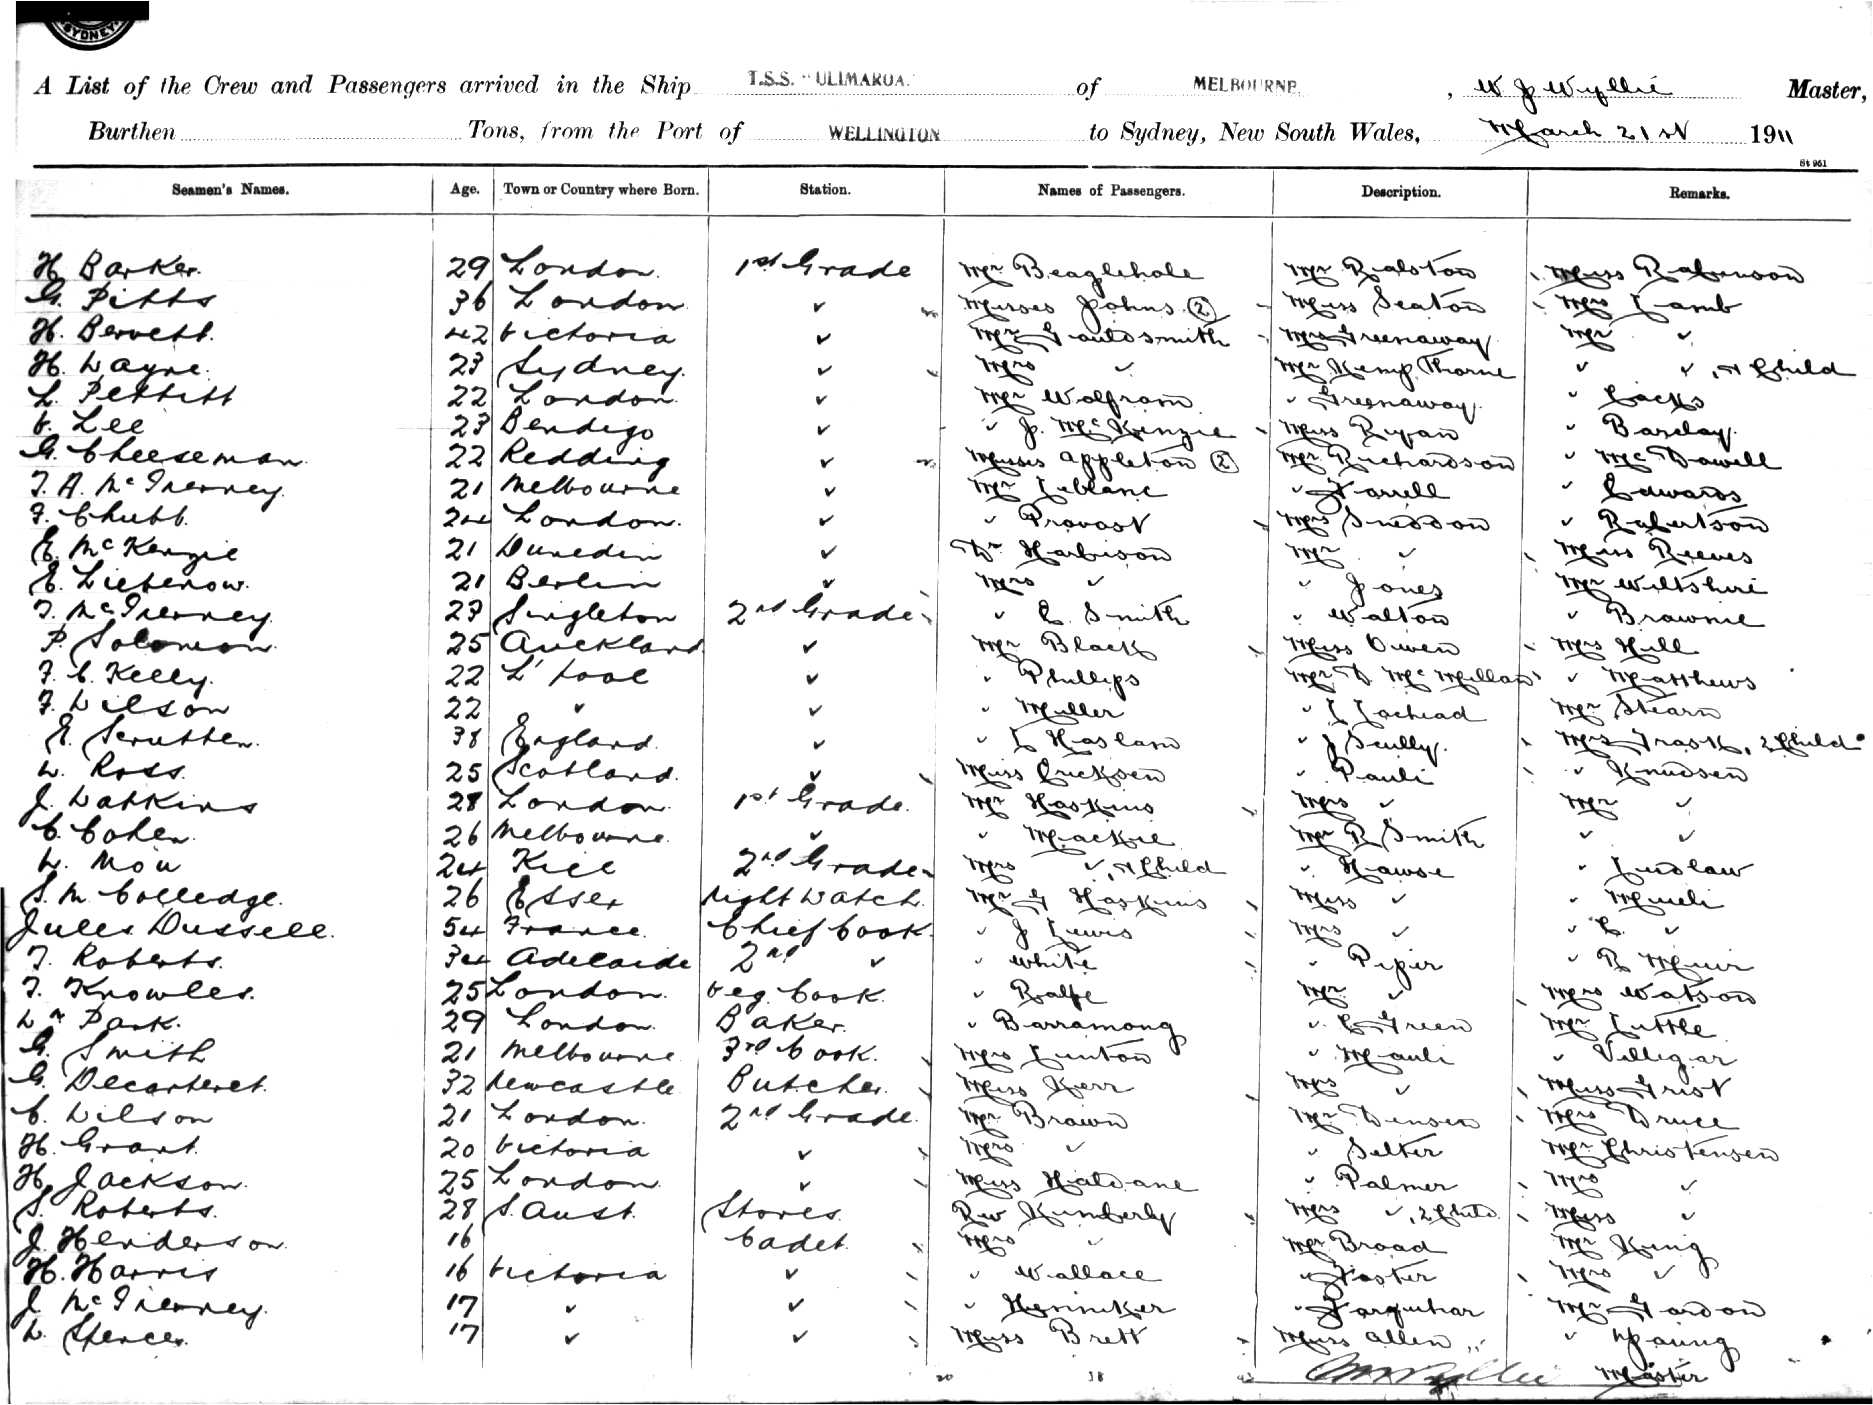 SYDNEY
A List of the Crew and Passengers arrived in the Ship T.S.S. "ULIMAROA." of MELBOURNE, W J Wyllie Master,
Burthen Tons, from the Port of WELLINGTON to Sydney, New South Wales, March 21st 1911
St 961
Seamen's Names. Age. Town or Country where Born. Station. Names of Passengers. Description. Remarks.
H. Barker. 29 London. 1st Grade Mr Beaglehole Mr Ralston Miss Robinson
G. Pitts 36 London ✓ Misses Johns (2) Miss Seaton Mrs Lamb
H. Bennett. 42 Victoria ✓ Mr Gouldsmith Mrs Greenaway Mr ✓
H. Wayne. 23 Sydney. ✓ Mrs ✓ Mr Kemp Thorne ✓ ✓, + Child
L. Pettitt 22 London. ✓ Mr Wolfram ✓ Greenaway. ✓ Cocks
V. Lee 23 Bendigo ✓ ✓ J. McKenzie Miss Ryan ✓ Barclay.
G. Cheeseman. 22 Redding ✓ Misses Appleton (2) Mr Richardson ✓ McDowell
T. A. McInerney. 21 Melbourne ✓ Mr Leblanc ✓ Farrell ✓ Edwards
F. Chubb. 24 London. ✓ ✓ Provost Mrs Sneddon ✓ Robertson
E. McKenzie 21 Dunedin ✓ Dr Harbison Mr ✓ Miss Reeves
E. Liebenow. 21 Berlin ✓ Mrs ✓ ✓ Jones Mr Wiltshire
T. McInerney. 23 Singleton 2nd Grade ✓ E. Smith ✓ Walton ✓ Brownie
P. Solomon. 25 Auckland ✓ Mr Black Miss Owen Mrs Hill
F. C. Kelly. 22 L'pool ✓ ✓ Phillips Mr D McMillan ✓ Matthews
F. Wilson 22 ✓ ✓ ✓ Miller ✓ L Lochead Mr Stearn
E. Scrutten. 38 England. ✓ ✓ L Haslam ✓ J Scully. Mrs Trask, 2 Child
W. Ross. 25 Scotland. ✓ Miss Ericksen ✓ Pauli ✓ Knudsen
J. Watkins 28 London. 1st Grade. Mr Haskins Mrs ✓ Mr ✓
C. Cohen. 26 Melbourne. ✓ ✓ Mackie Mr R Smith ✓ ✓
W. Mou 24 Kiel 2nd Grade Mrs ✓, + Child ✓ Hawse ✓ Ludlaw
S. M. Colledge. 26 Essex Night Watch. Mr G Haskins Miss ✓ ✓ Mueli
Jules Dussell. 54 France. Chief Cook. ✓ J Lewis Mrs ✓ ✓ E. ✓
T. Roberts. 34 Adelaide 2nd ✓ ✓ White ✓ Piper ✓ R Muir
T. Knowles. 25 London. Veg. Cook. ✓ Ralfe Mr ✓ Mrs Watson
Wm Park. 29 London. Baker. ✓ Barramong ✓ C Green Mr Tuttle
G. Smith 21 Melbourne 3rd Cook. Mrs Linton ✓ Mauli ✓ Villegar
G. Decarteret. 32 Newcastle Butcher. Miss Kerr Mrs ✓ Miss Grist
C. Wilson 21 London. 2nd Grade. Mr Brown Mr Densen Mrs Druce
H. Grant. 20 Victoria ✓ Mrs ✓ ✓ Salter Mr Christensen
H. Jackson. 25 London. ✓ Miss Haldane ✓ Palmer Mrs ✓
S. Roberts. 28 S. Aust. Stores. Rev Kimberly Mrs ✓, 2 Child. Miss ✓
J. Henderson. 16 Cadet. Mrs ✓ Mr Broad Mr King
H. Harris 16 Victoria ✓ ✓ Wallace ✓ Foster Mrs ✓
J. McInerney. 17 ✓ ✓ ✓ Henniker ✓ Farquhar Mr Gordon
W. Spencer. 17 ✓ ✓ Miss Brett Miss Allen ✓ Young
38 Wyllie Master